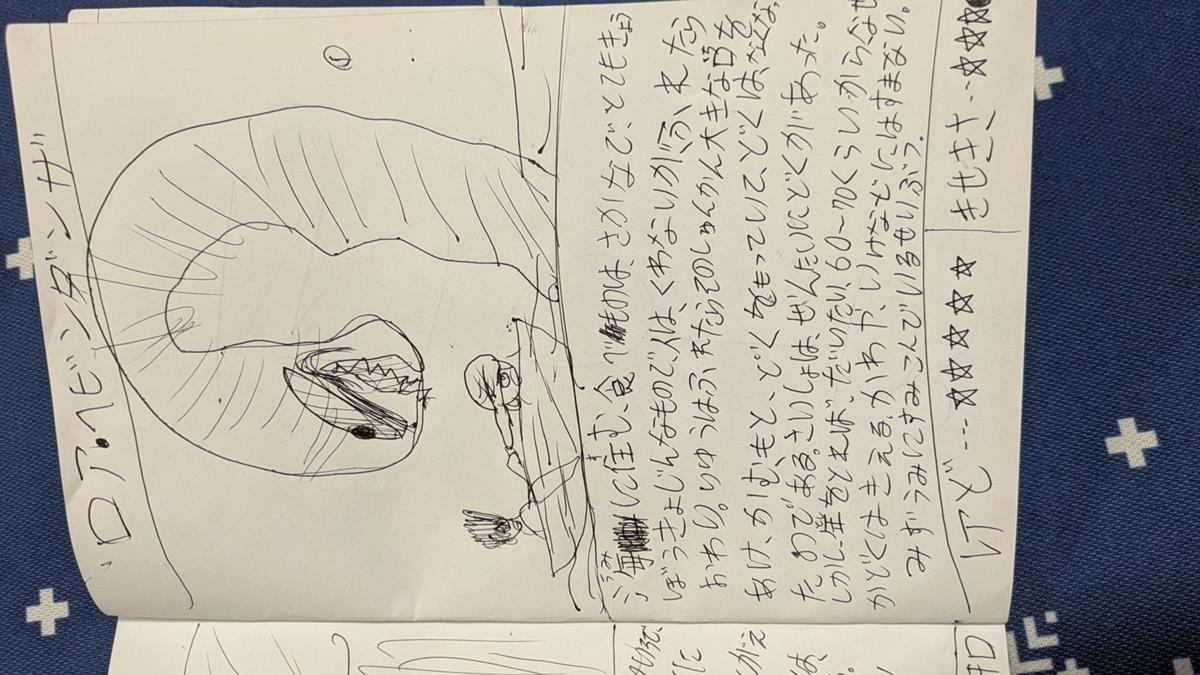 ロア.ヘビンダンガ
①
海に住む、食べものは、さかなで、とてもきょう
ぼうきょじんなもので人は、くわないがふれたら
おわり。りゆうはふれたらそのしゅんかん大きな口を
あけ、かむ。もと、どくをもっていて、どくはなくなっ
たのである。さいしょはぜんたいにどくがあった。
しかし年をとれば、だいたい、60~70くらいからなぜ
かどくはきえる。かわや、いけなどにはすまない。
みずうみにすみこんでいるせいぶつ。
レアど…☆☆☆☆☆
きせきさ…☆☆☆★